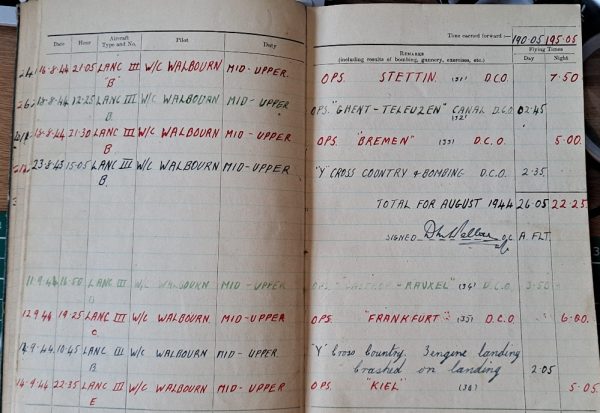 Time carried forward:— 190.05 195.05
Date Hour Aircraft Type and No. Pilot Duty REMARKS (including results of bombing, gunnery, exercises, etc.) Flying Times Day Night
16-8-44 21.05 LANC III "B" W/C WALBOURN MID-UPPER. OPS. STETTIN. (31) D.C.O. 7.50
18-8-44 12.25 LANC III B. W/C WALBOURN MID-UPPER. OPS. "GHENT-TERNUZEN" CANAL D.C.O. (32) 02.45
18-8-44 21.30 LANC III B. W/C WALBOURN MID-UPPER OPS. "BREMEN" (33) D.C.O. 5.00
23-8-43 15.05 LANC III B. W/C WALBOURN MID-UPPER "Y" CROSS COUNTRY & BOMBING D.C.O. 2.35
TOTAL FOR AUGUST 1944 26.05 22.25
SIGNED O/C A. FLT.
11.9.44 16.50 LANC III B W/C WALBOURN MID-UPPER OPS. RAUXEL" (34) D.C.O. 3.50
12.9.44 19.25 LANC III C W/C WALBOURN MID-UPPER OPS. "FRANKFURT" (35) D.C.O. 6.50.
9.44 10.45 LANC III B W/C WALBOURN MID-UPPER "Y" Cross Country. 3 engine landing
Crashed on landing 2.05
14.9.44 22.35 LANC III E W/C WALBOURN MID-UPPER OPS. "KIEL" (36) D.C.O. 5.05